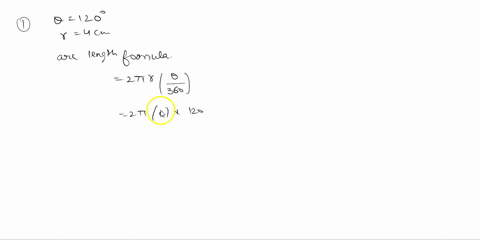 ① θ = 120°
r = 4 cm
arc length formula.
= 2πr (θ/360)
= 2π ( ) × 120